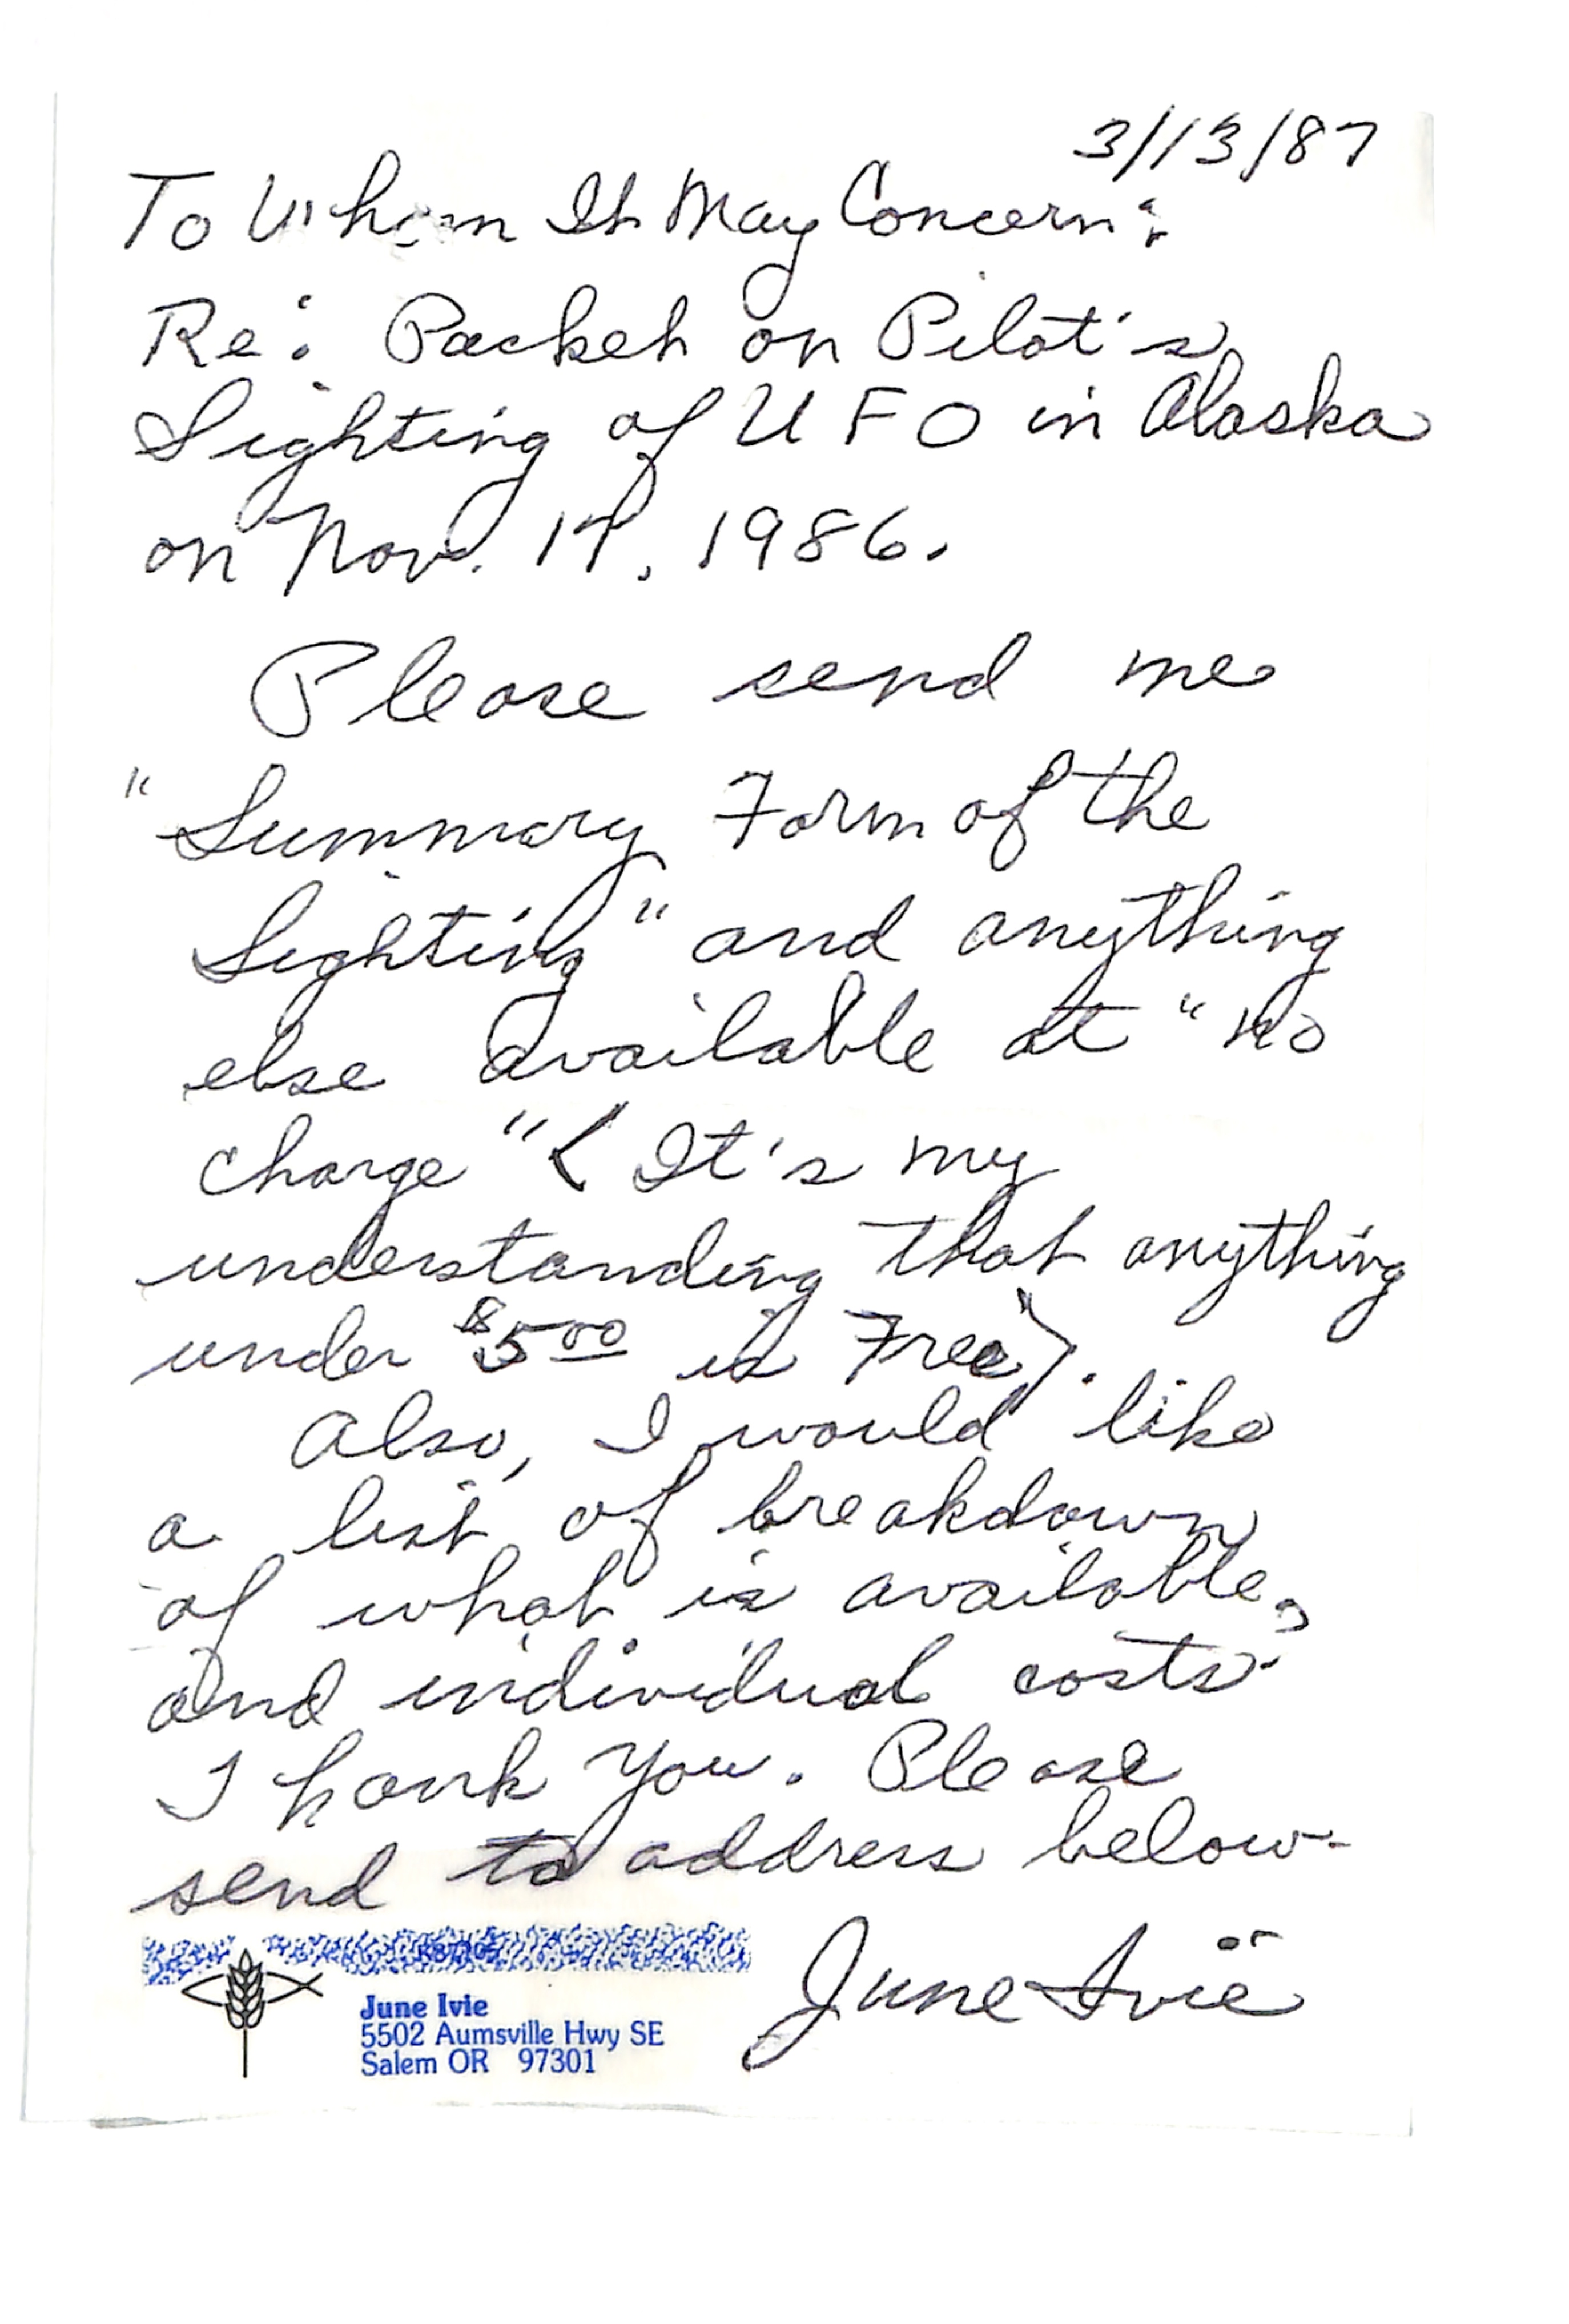 3/13/87
To Whom It May Concern:
Re: Packet on Pilot's
Sighting of UFO in Alaska
on Nov. 17, 1986.
Please send me
"Summary Form of the
Sighting" and anything
else available at "no
charge" (It's my
understanding that anything
under $5.00 is Free).
Also, I would like
a list of breakdown
of what is available,
and individual costs.
Thank you. Please
send to address below.
June Ivie
June Ivie
5502 Aumsville Hwy SE
Salem OR 97301